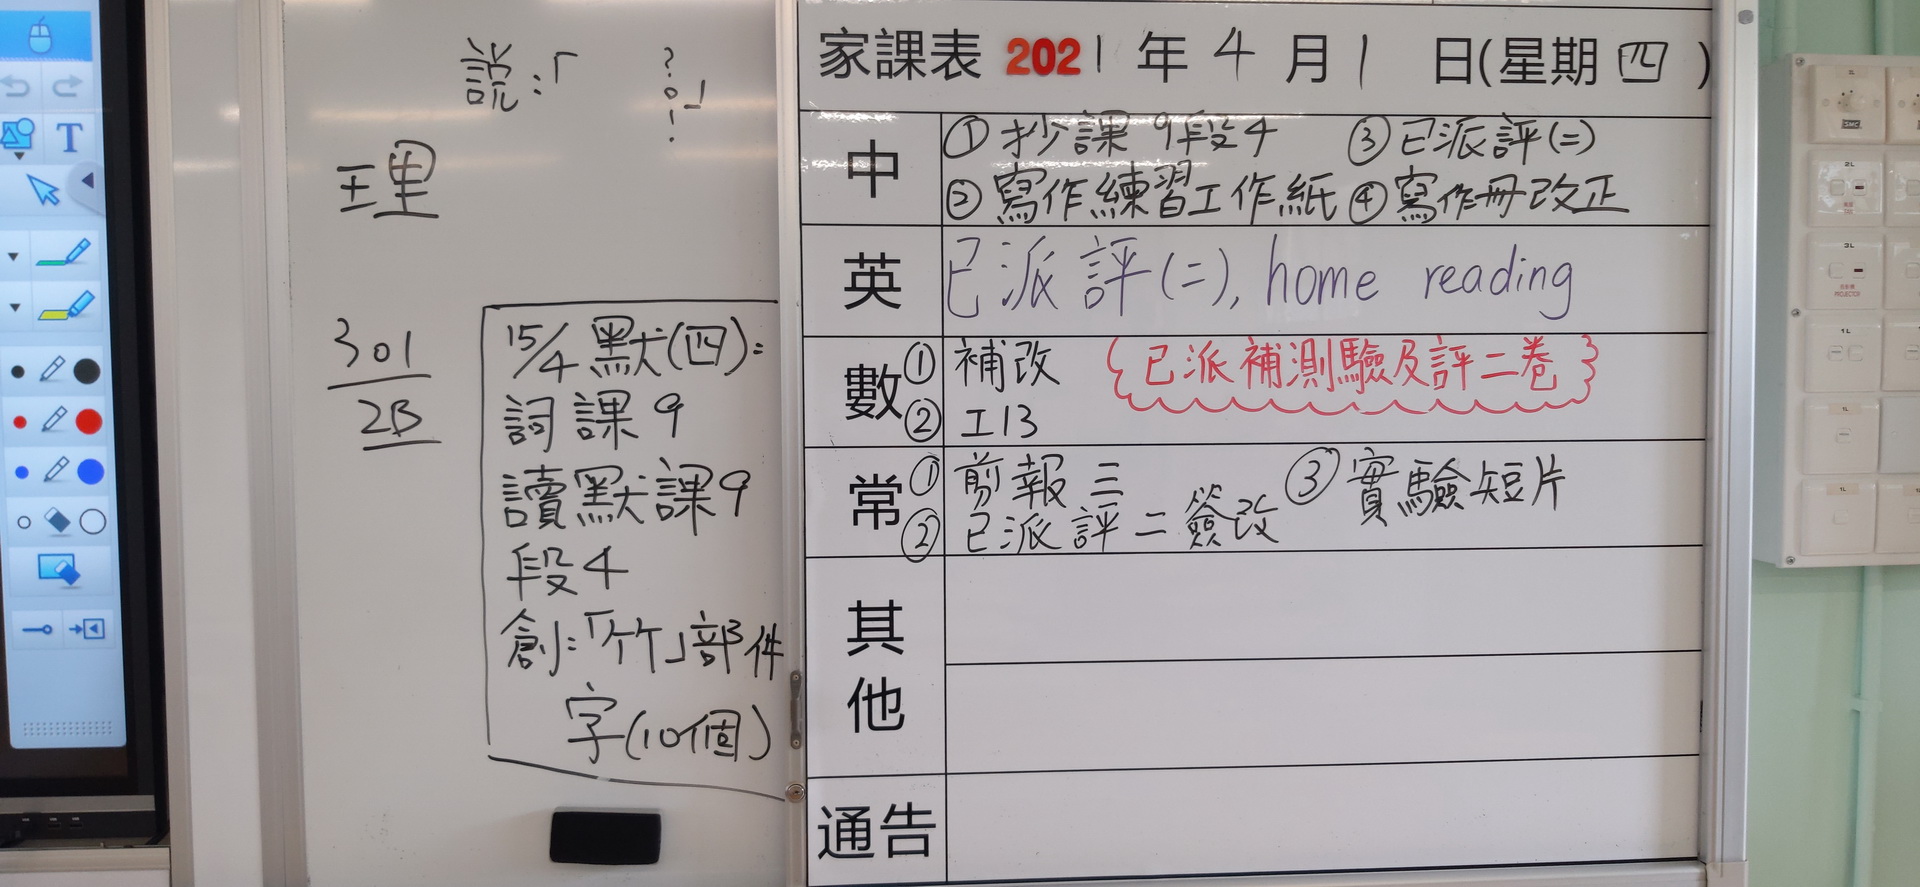 説：「　？。！」
理
301
2B
15/4 默(四)：
詞 課 9
讀默課9
段4
創：「竹」部件
字(10個)
家課表 2021 年 4 月 1 日(星期 四 )
中
① 抄課 9段4 ③ 已派評(二)
② 寫作練習工作紙 ④ 寫作冊改正
英
已派評(二), home reading
數
① 補改 {已派補測驗及評二卷}
② 工13
常
① 剪報三 ③ 實驗短片
② 已派評二簽改
其他
通告
T